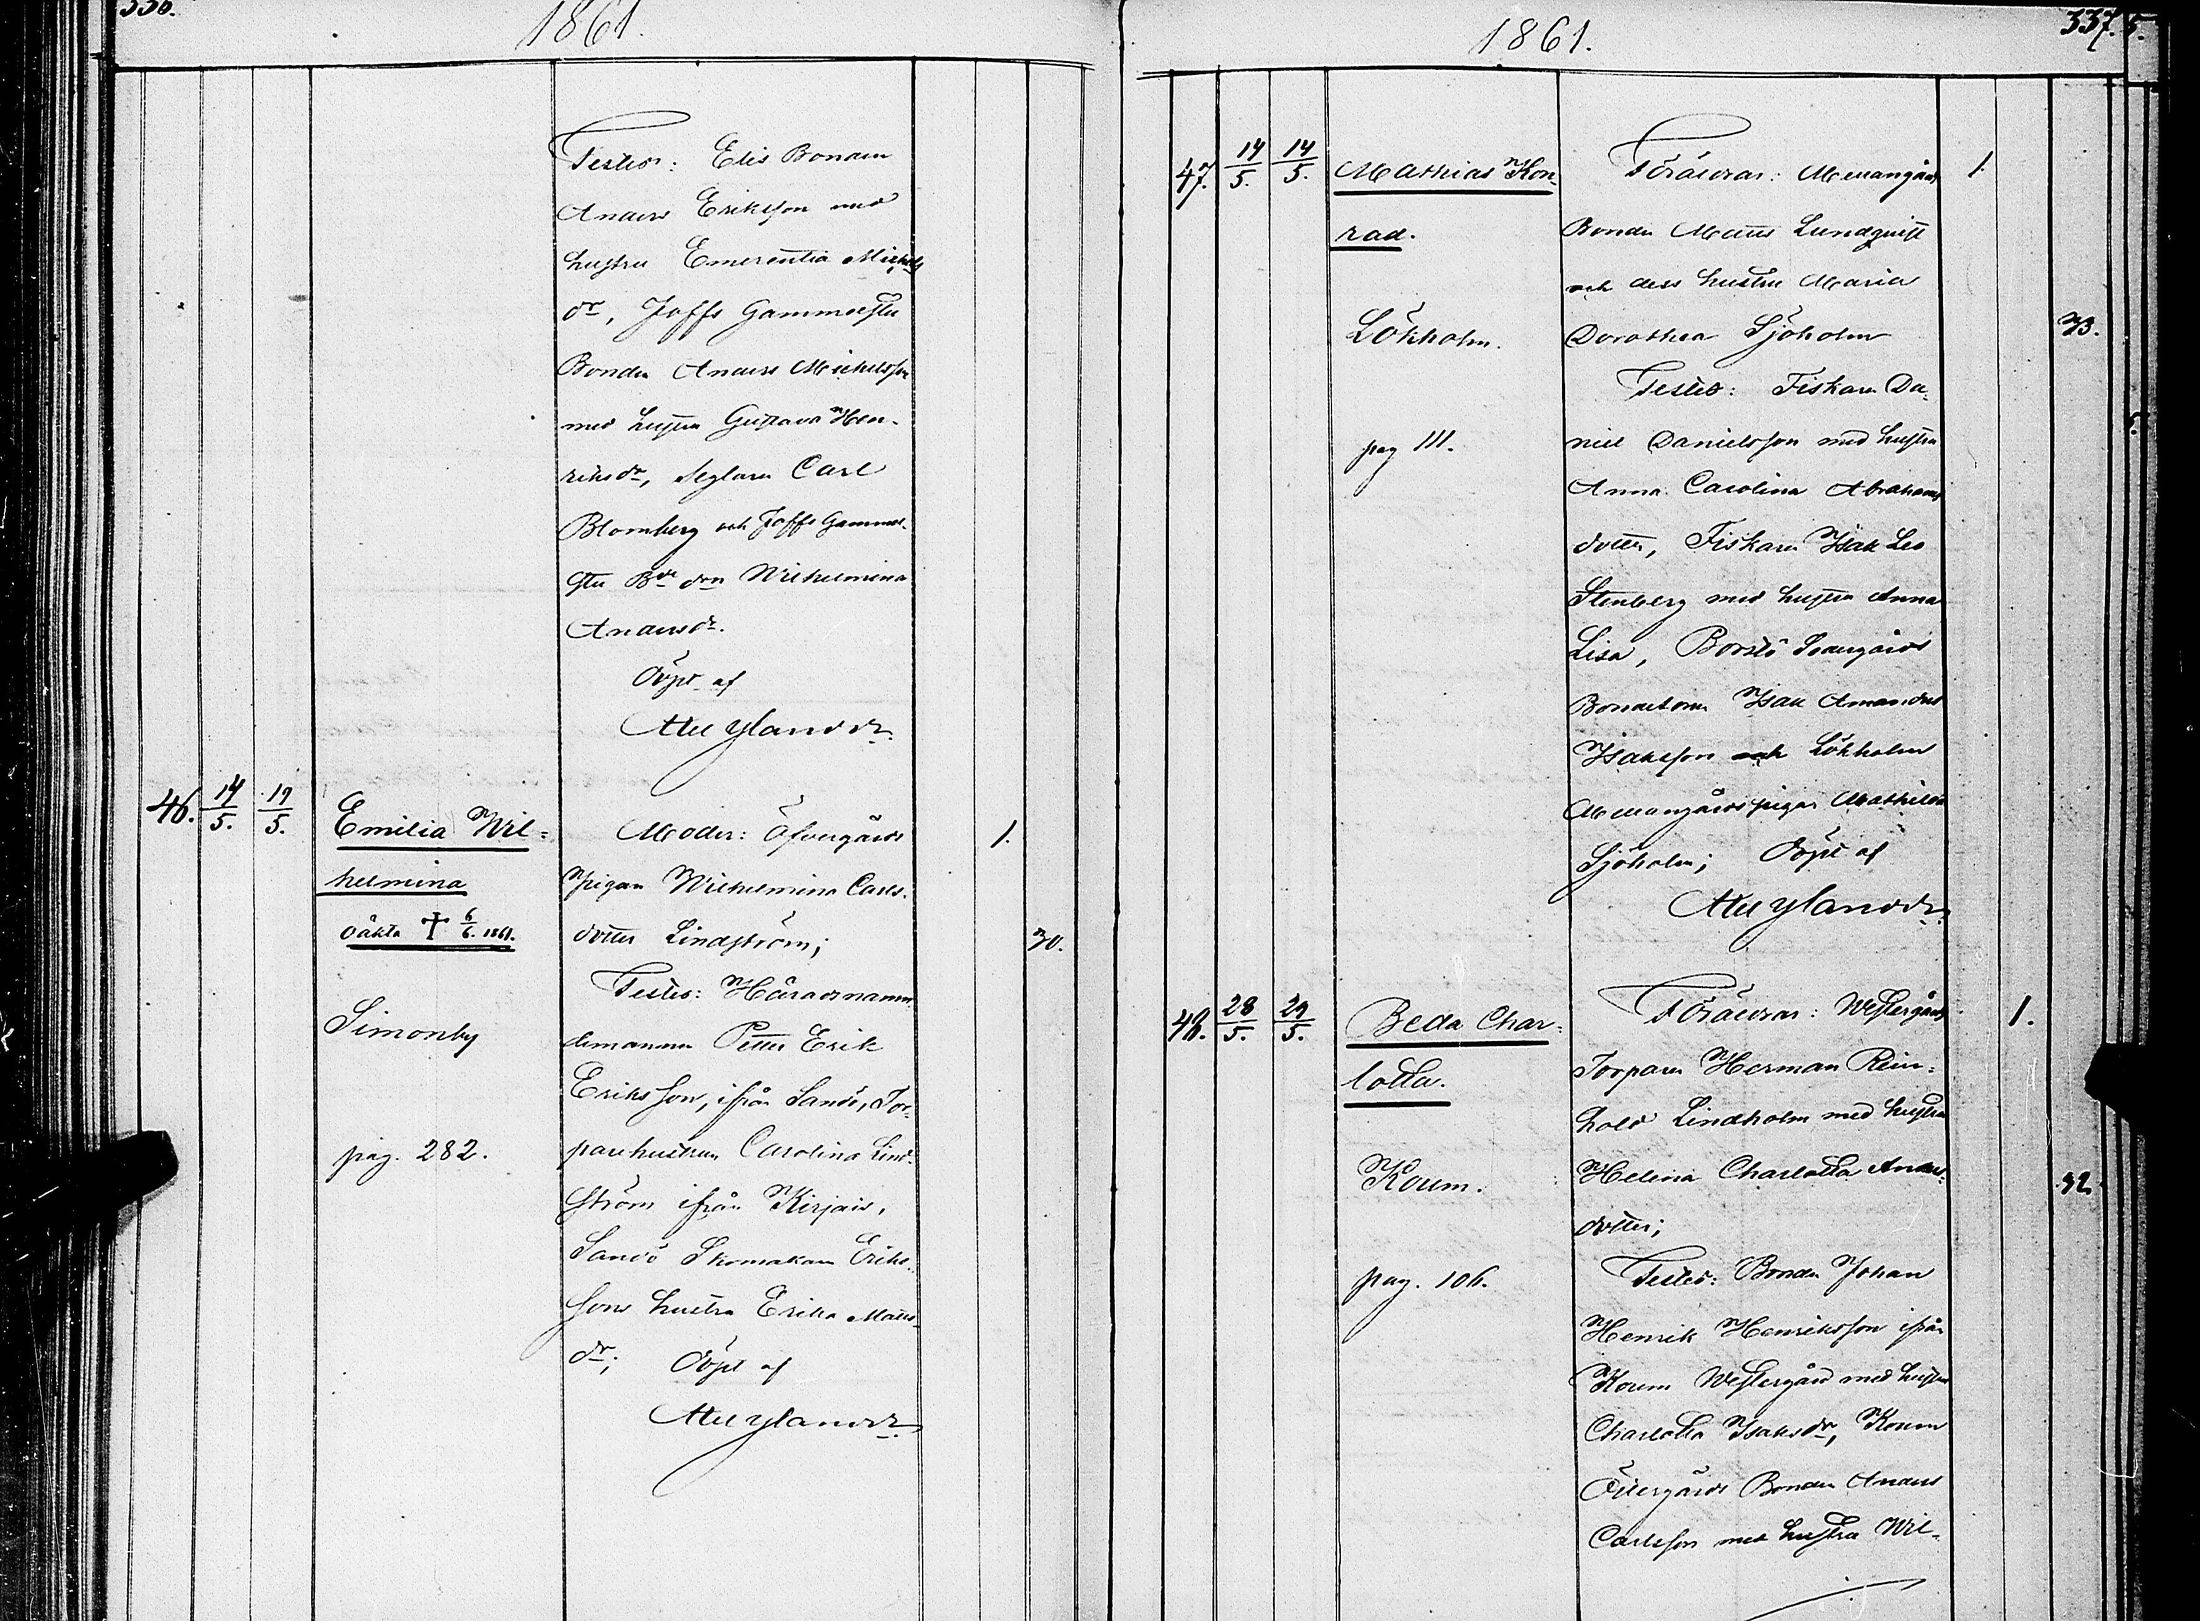 336.
1861.
Testes: Elis Bonden
Anders Eriksson med
hustru Emerentia Michels
dr, Joffs Gammelstu
Bonden Anders Michelsson
med hustru Gustava Hen-
riksdr, Seglaren Carl
Blomberg och Joffs Gammel-
stu Bde drn Wilhelmina
Andersdr.
Döpt af
Nylander
46. 14/5. 19/5.
Emilia Wil=
helmina
oäkta † 6/6. 1861.
Simonby
pag. 282.
Moder: Öfvergårds
pigan Wilhelmina Carls-
dotter Lindström;
Testes: Häradsnämn
demannen Petter Erik
Eriksson, ifrån Sandö, Tor-
parehustrun Carolina Lind-
ström ifrån Kirjais,
Sandö Skomakaren Eriks-
sons hustru Erika Matts-
dr; Döpt af
Nylander
1.
30.
337.
1861.
47. 14/5. 14/5.
Mathias Kon-
rad.
Lökholm.
pag 111.
Föräldrar: Mellangårds
Bonden Matts Lundqvist
och dess hustru Maria
Dorothea Sjöholm
Testes: Fiskaren Da-
niel Danielsson med hustru
Anna Carolina Abrahams
dotter, Fiskaren Isak Leo
Stenberg med hustru Anna
Lisa, Borstö Södergårds
Bondesonen Isak Amandus
Isaksson och Lökholm
Mellangårds pigan Mathilda
Sjöholm; Döpt af
Nylander
1.
33.
48. 28/5. 29/5.
Beda Char-
lotta.
Koum.
pag. 106.
Föräldrar: Westergårds
Torparen Herman Rein-
hold Lindholm med hustru
Helena Charlotta Anders-
dotter;
Testes: Bonden Johan
Henrik Henriksson ifrån
Koum Westergård med hustru
Charlotta Isaksdr, Koum
Östergårds Bonden Anders
Carlsson med hustru Wil-
1.
32.